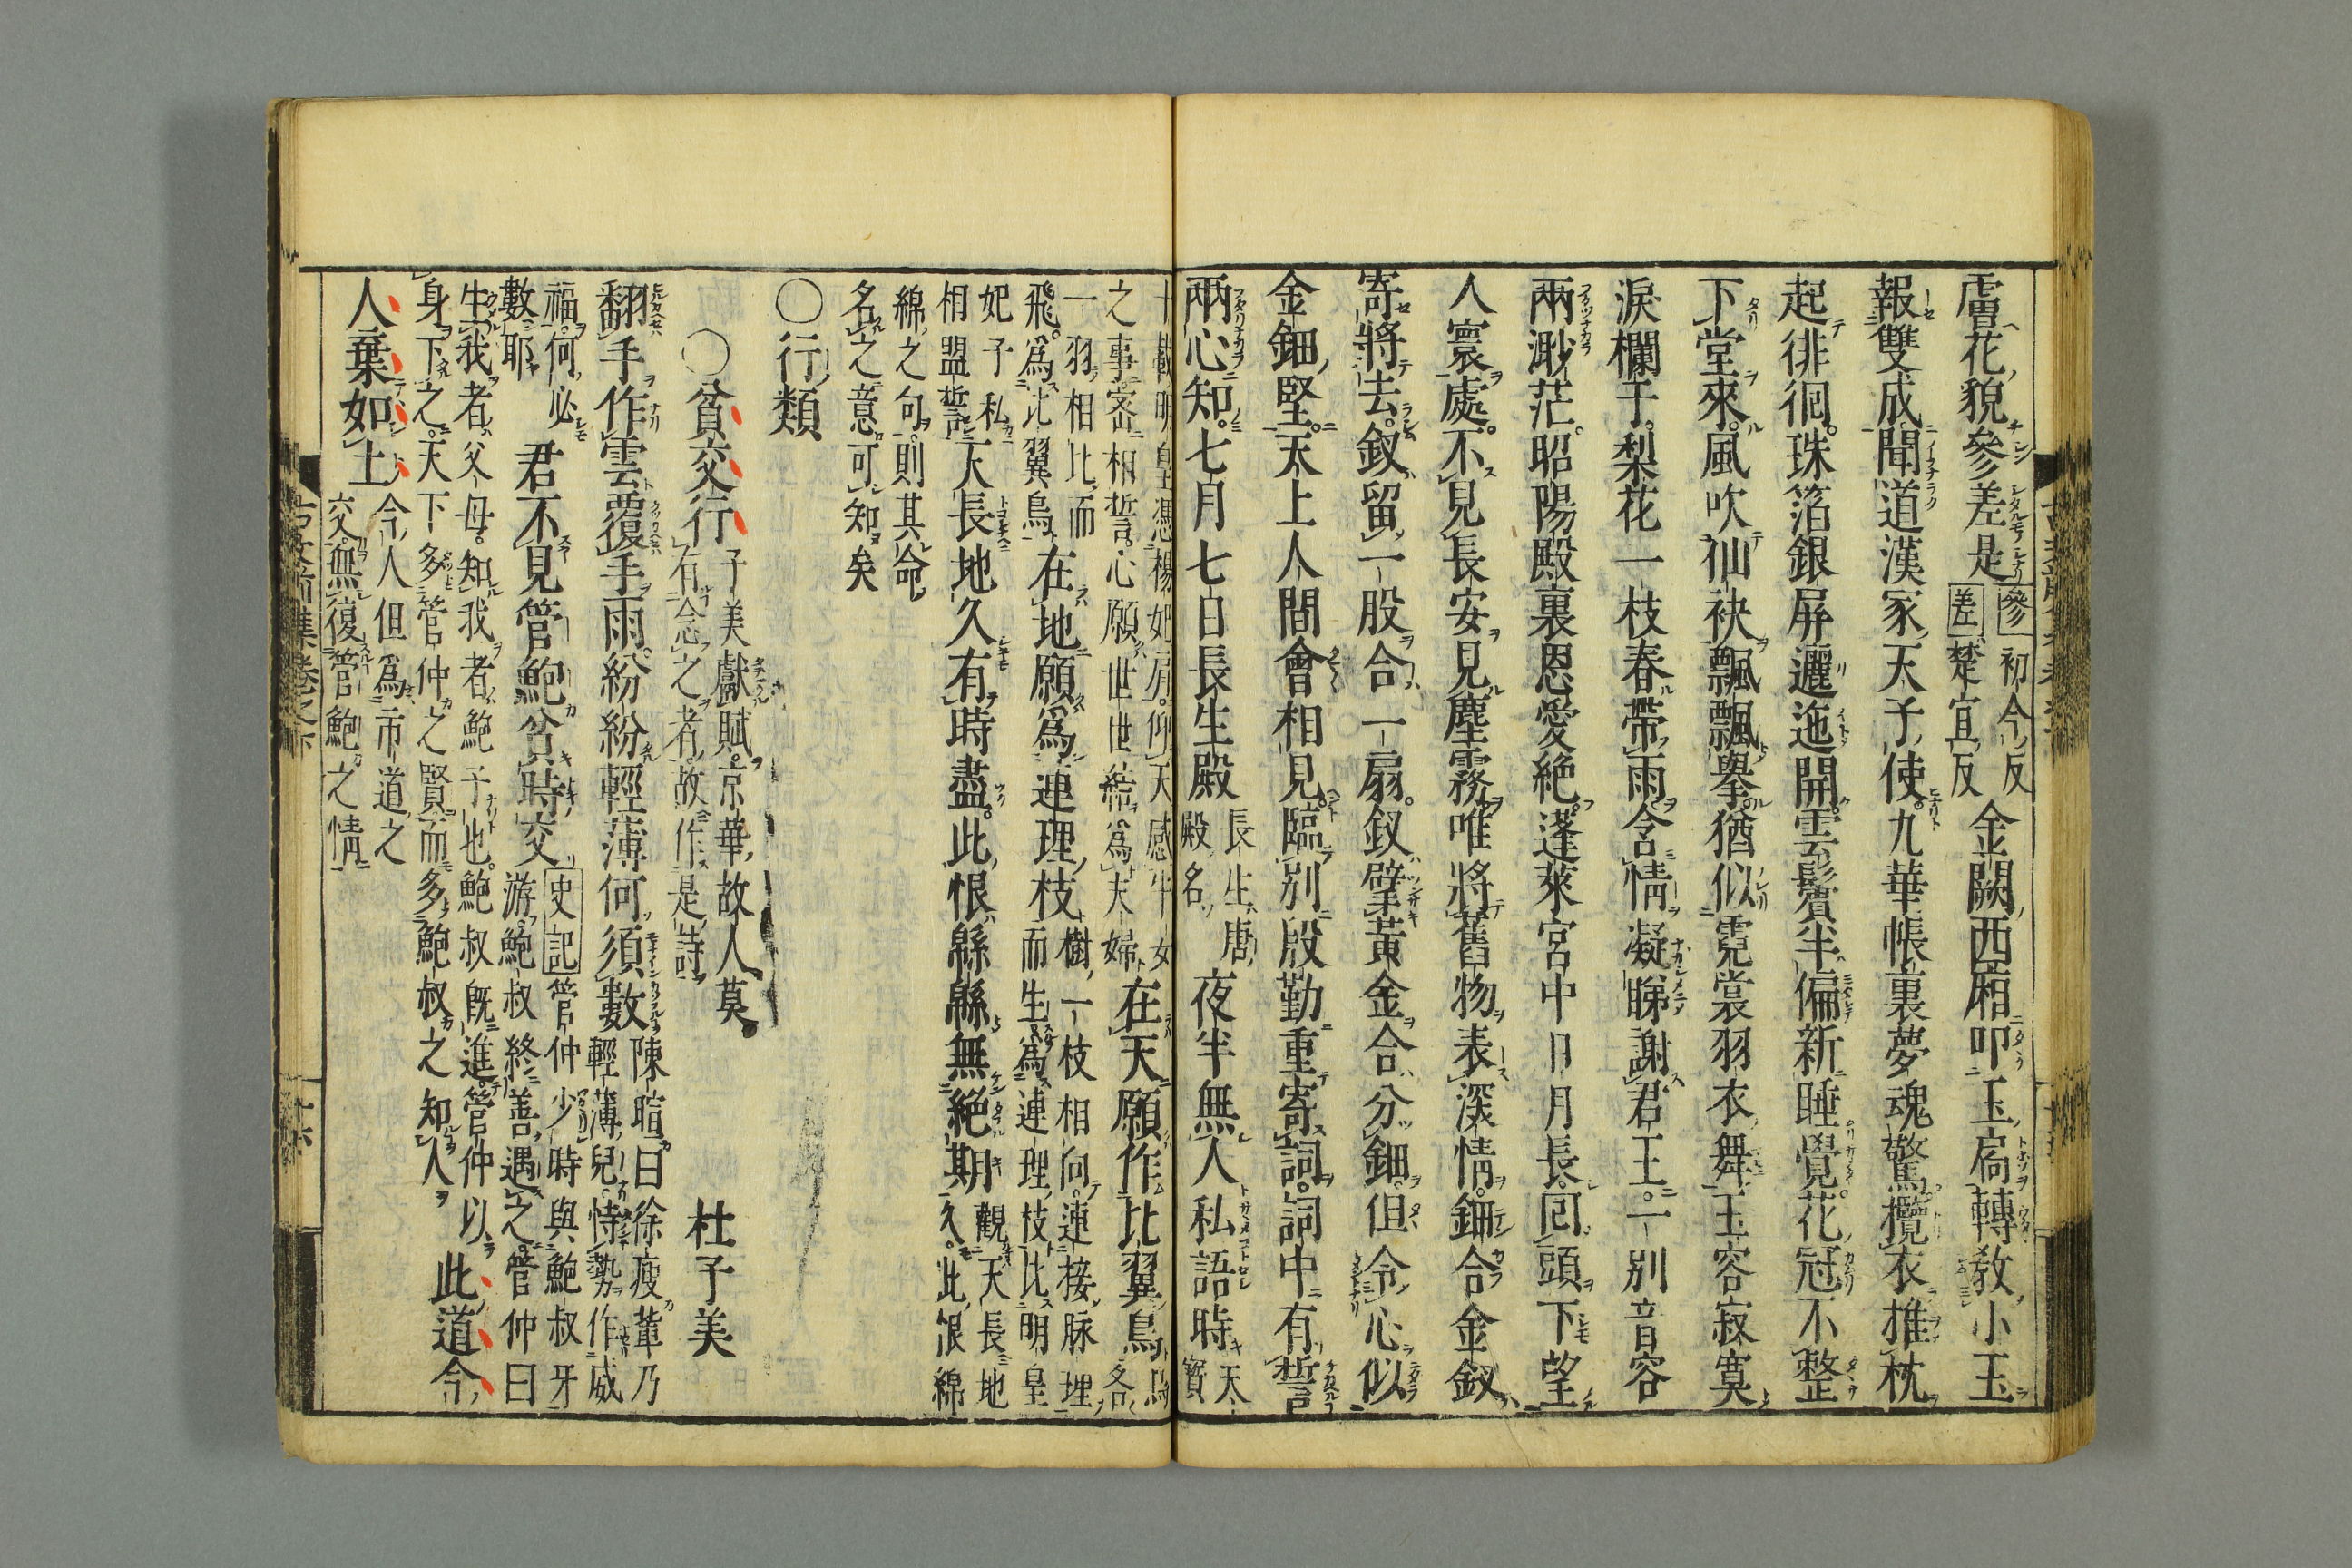 膚花貌參差是參初今反
差楚宜反金闕西廂叩玉扃轉敎小玉
報雙成聞道漢家天子使九華帳裏夢魂驚攬衣推枕
起徘徊珠箔銀屏邐迤開雲鬢半偏新睡覺花冠不整
下堂來風吹仙袂飄飄擧猶似霓裳羽衣舞玉容寂寞
淚欄干梨花一枝春帶雨含情凝睇謝君王一別音容
兩渺茫昭陽殿裏恩愛絶蓬萊宮中日月長回頭下望
人寰處不見長安見塵霧唯將舊物表深情鈿合金釵
寄將去釵留一股合一扇釵擘黃金合分鈿但令心似
金鈿堅天上人間會相見臨別殷勤重寄詞詞中有誓
兩心知七月七日長生殿長生唐
殿名夜半無人私語時天
寳
十載明皇憑楊妃肩仰天感牛女
之事密相誓心願世世爲夫婦在天願作比翼鳥鳥各
一羽相比而
飛爲比翼鳥在地願爲連理枝樹一枝相向連接脉理
而生爲連理枝比明皇
妃子私
相盟誓天長地久有時盡此恨緜緜無絶期觀天長地
久此恨綿
綿之句則其命
名之意可知矣
〇行類
〇貧交行子美獻賦京華故人莫
有念之者故作是詩杜子美
翻手作雲覆手雨紛紛輕薄何須數陳暄曰徐瘦輩乃
輕薄兒恃勢作威
福何必
數耶君不見管鮑貧時交史記管仲少時與鮑叔牙
游鮑叔終善遇之管仲曰
生我者父母知我者鮑子也鮑叔旣進管仲以
身下之天下多管仲之賢而多鮑叔之知人此道今
人棄如土今人但爲市道之
交無復管鮑之情